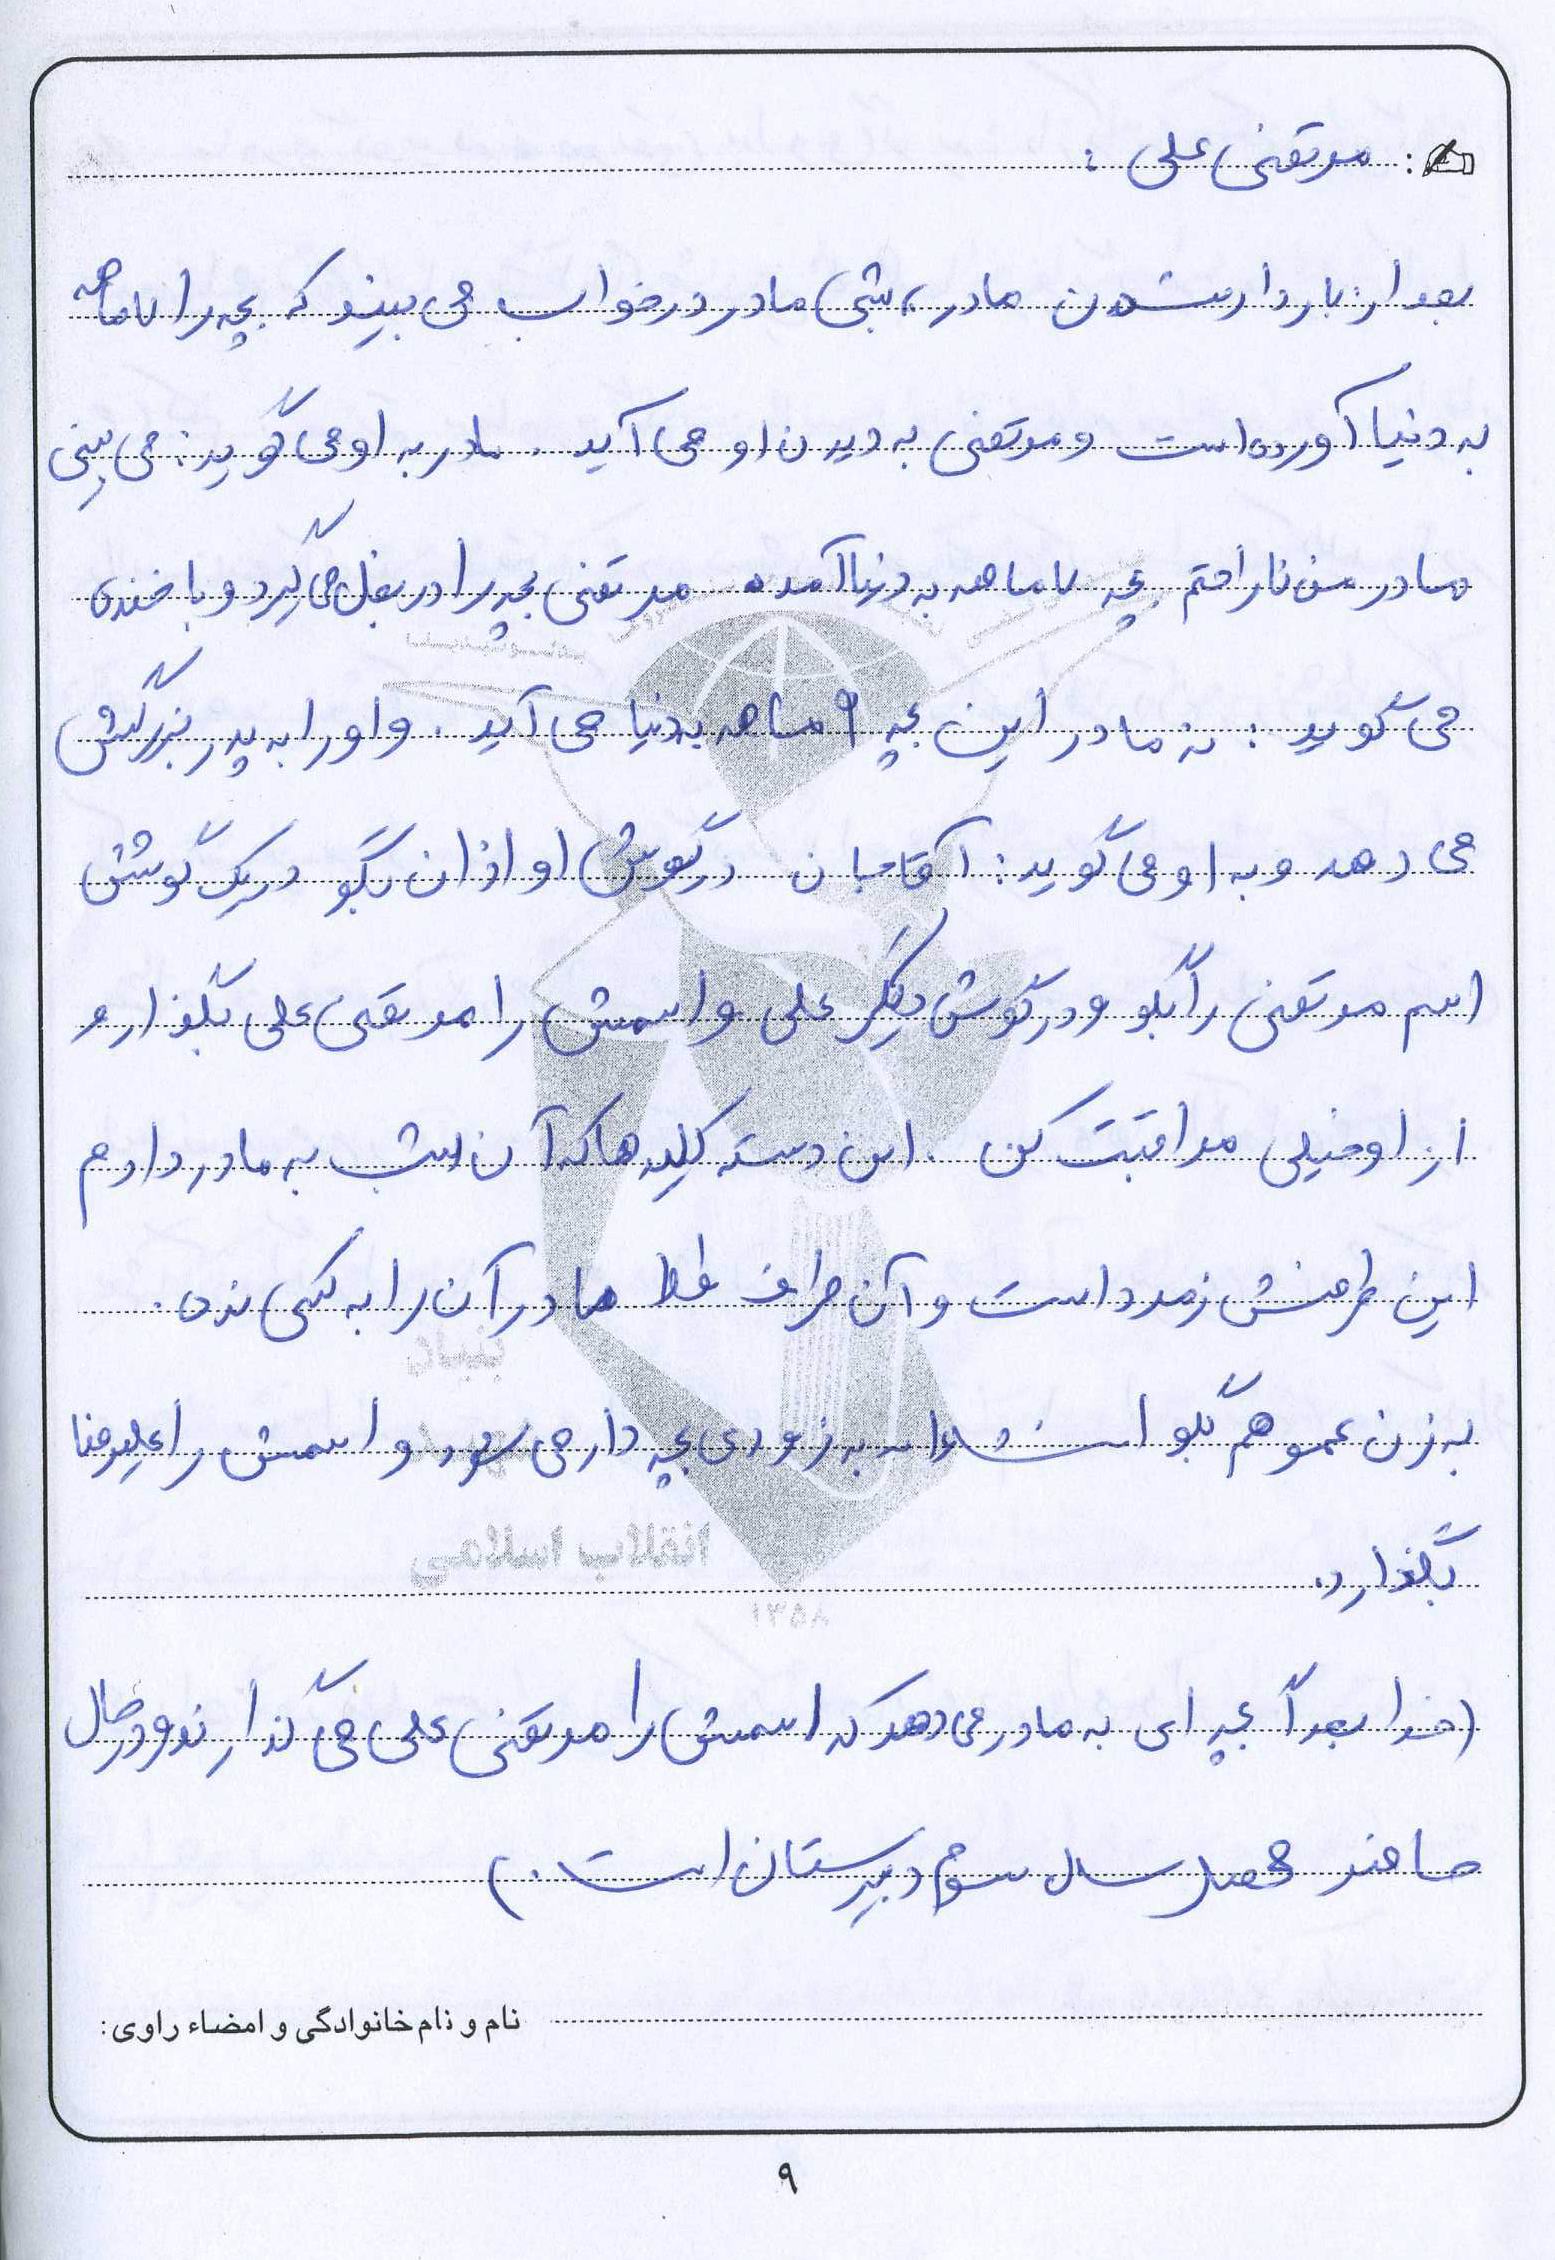 مرتضی علی :
بعد از باردار شدن مادر، شبی مادر در خواب می بیند که بچه را ۷ ماهه
به دنیا آورده است و مرتضی به دیدن او می آید . مادر به او می گوید : می بینی
مادر من ناراحتم بچه ۷ ماهه به دنیا آمده مرتضی بچه را در بغل می گیرد و با خنده
می گوید : نه مادر این بچه ۹ ماهه به دنیا می آید . و او را به پدر بزرگش
می دهد و به او می گوید : آقاجان در گوش او اذان بگو در یک گوشش
اسم مرتضی را بگو و در گوش دیگر علی و اسمش را مرتضی علی بگذار و
از او خیلی مراقبت کن . این دسته کلید ها که آن شب به مادر دادم
این طرفش زمرد است و آن طرف طلا مادر آن را به کسی نده .
به زن عمو هم بگو انشاءا... به زودی بچه دار می شود و اسمش را علیرضا
بگذارد.
(خدا بعداً بچه ای به مادر می دهد که اسمش را مرتضی علی می گذارند و در حال
حاضر محصل سال سوم دبیرستان است .)
نام و نام خانوادگی و امضاء راوی:
۹
بنیاد
انقلاب اسلامی
۱۳۵۸